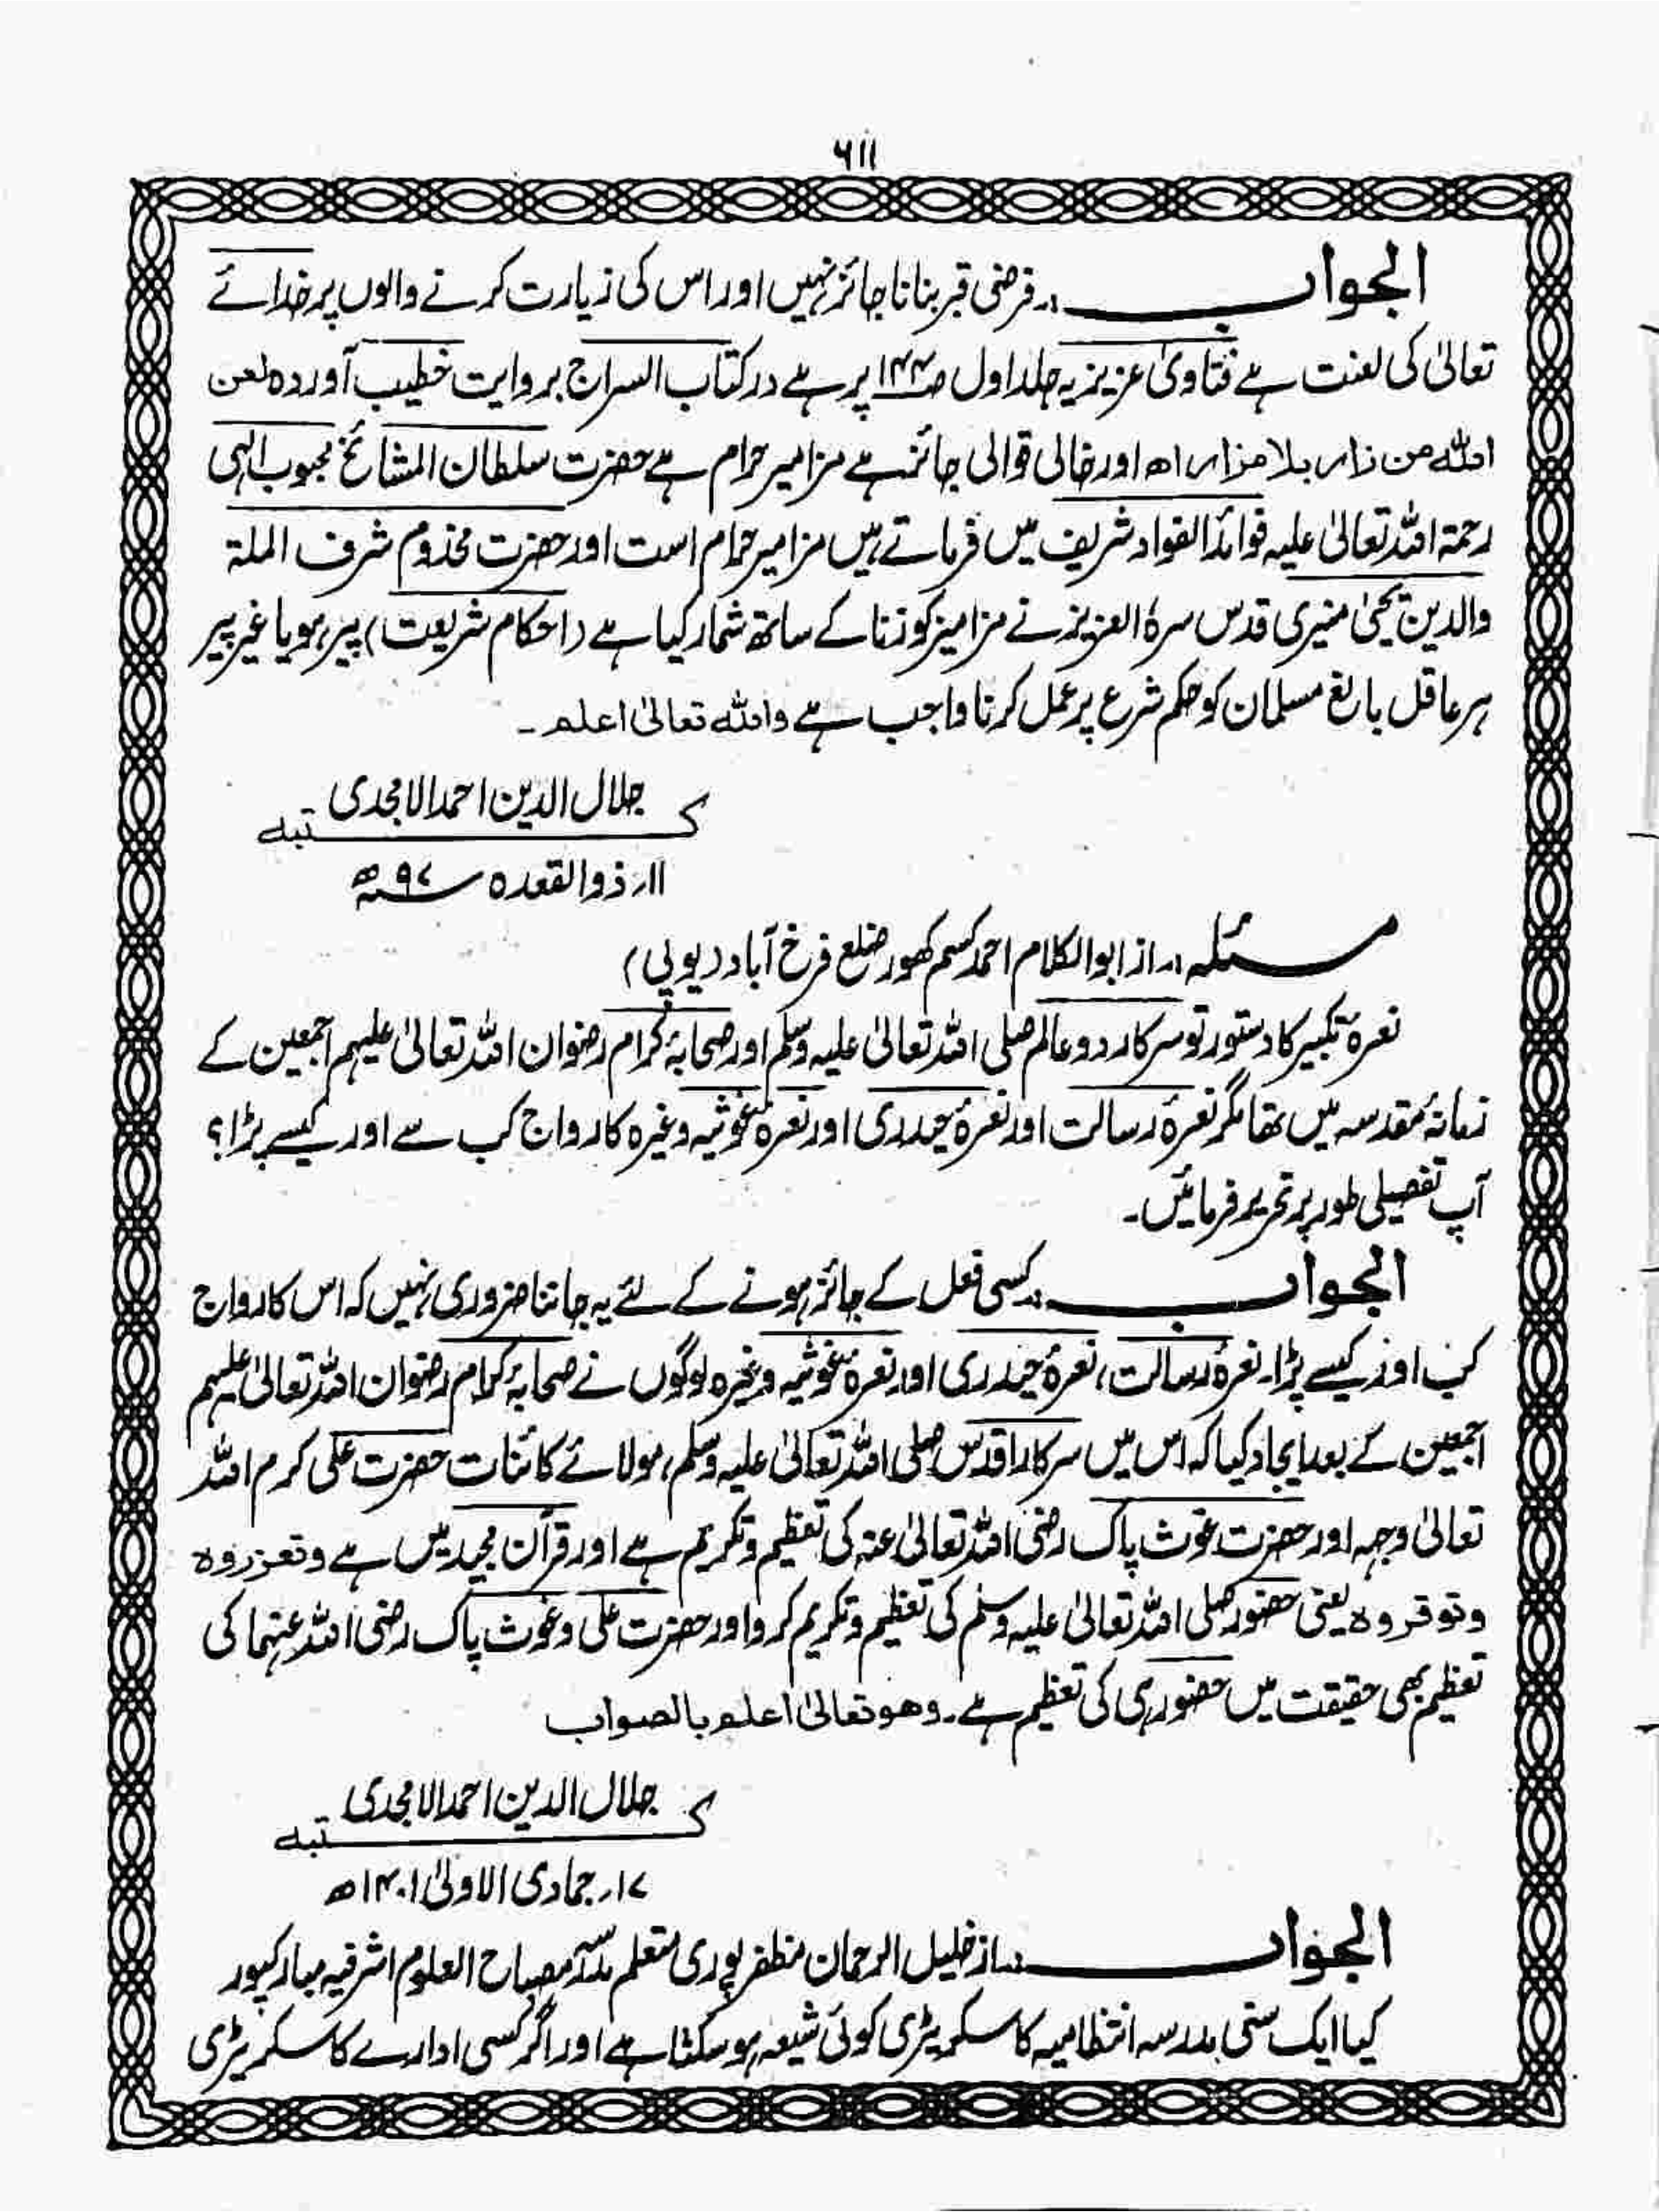 ٦١١
الجواب :۔ فرضی قبر بنانا جائز نہیں اور اس کی زیارت کرنے والوں پر خدائے
تعالیٰ کی لعنت ہے فتاویٰ عزیزیہ جلد اول ص۱۴۴ پر ہے در کتاب السراج بروایت خطیب آوردہ لعن
اللہ من زار بلا مزار اھ اور خالی قوالی جائز ہے مزامیر حرام ہے حضرت سلطان المشائخ محبوب الٰہی
رحمۃ اللہ تعالیٰ علیہ فوائد الفواد شریف میں فرماتے ہیں مزامیر حرام است اور حضرت مخدوم شرف الملۃ
والدین یحییٰ منیری قدس سرہٗ العزیز نے مزامیز کو زنا کے ساتھ شمار کیا ہے (احکام شریعت) پیر ہو یا غیر پیر
ہر عاقل بالغ مسلمان کو حکم شرع پر عمل کرنا واجب ہے واللہ تعالیٰ اعلم۔
جلال الدین احمد الامجدی
کتبہ
۱۱؍ ذو القعدہ ۹۷ھ
مسئلہ :۔ از ابو الکلام احمد کسم کھور ضلع فرخ آباد (یوپی)
نعرۂ تکبیر کا دستور تو سرکار دو عالم صلی اللہ تعالیٰ علیہ وسلم اور صحابۂ کرام رضوان اللہ تعالیٰ علیہم اجمعین کے
زمانۂ مقدسہ میں تھا مگر نعرۂ رسالت اور نعرۂ حیدری اور نعرۂ غوثیہ وغیرہ کا رواج کب سے اور کیسے پڑا؟
آپ تفصیلی طور پر تحریر فرمائیں۔
الجواب :۔ کسی فعل کے جائز ہونے کے لئے یہ جاننا ضروری نہیں کہ اس کا رواج
کب اور کیسے پڑا۔ نعرۂ رسالت، نعرۂ حیدری اور نعرۂ غوثیہ وغیرہ لوگوں نے صحابۂ کرام رضوان اللہ تعالیٰ علیہم
اجمعین کے بعد ایجاد کیا کہ اس میں سرکار اقدس صلی اللہ تعالیٰ علیہ وسلم، مولائے کائنات حضرت علی کرم اللہ
تعالیٰ وجہہ اور حضرت غوث پاک رضی اللہ تعالیٰ عنہ کی تعظیم وتکریم ہے اور قرآن مجید میں ہے وتعزروہ
وتوقروہ یعنی حضور صلی اللہ تعالیٰ علیہ وسلم کی تعظیم وتکریم کرو اور حضرت علی وغوث پاک رضی اللہ عنہما کی
تعظیم بھی حقیقت میں حضور ہی کی تعظیم ہے۔ وھو تعالیٰ اعلم بالصواب
جلال الدین احمد الامجدی
کتبہ
۱۷؍ جمادی الاولیٰ ۱۴۰۱ھ
الجواب :۔ از خلیل الرحمان مظفر پوری متعلم مدرسہ مصباح العلوم اشرفیہ مبارکپور
کیا ایک سنی مدرسہ انتظامیہ کا سکریٹری کوئی شیعہ ہو سکتا ہے اور اگر کسی ادارے کا سکریٹری